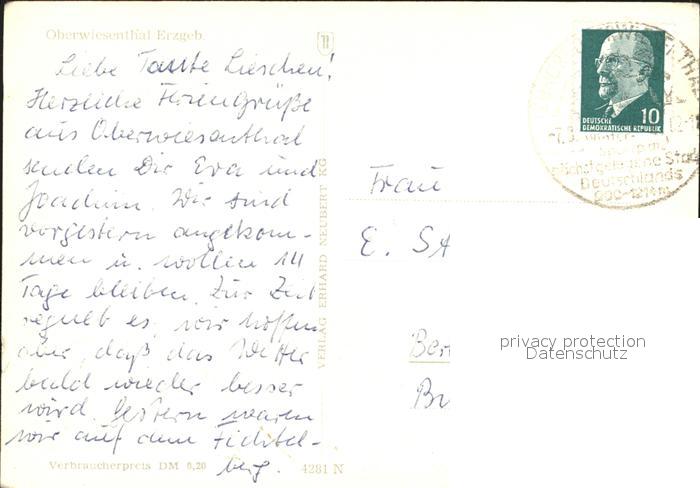 Oberwiesenthal Erzgeb.
Liebe Tante Lieschen!
Herzliche Feriengrüße
aus Oberwiesenthal
senden Dir Eva und
Joachim. Wir sind
vorgestern angekom-
men u. wollen 14
Tage bleiben. Zur Zeit
regnet es, wir hoffen
aber, daß das Wetter
bald wieder besser
wird. Gestern waren
wir auf dem Fichtel-
berg.
Verbraucherpreis DM 0,20
4281 N
VERLAG ERHARD NEUBERT KG
10
DEUTSCHE
DEMOKRATISCHE REPUBLIK
höchstgelegene Stadt
Deutschlands
900-1214 m
Frau
E. SA
Ber
Br
privacy protection
Datenschutz